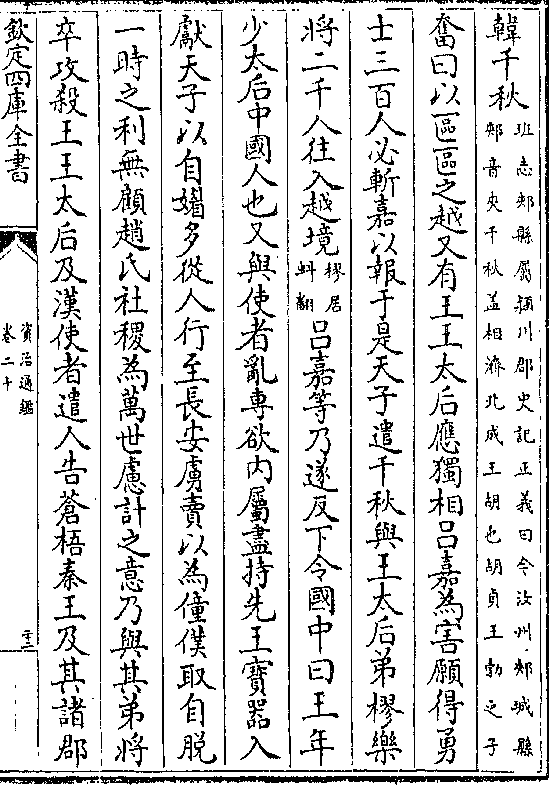 韓千秋班志郟縣屬潁川郡史記正義曰今汝州郟城縣郟音夾千秋蓋相濟北成王胡也胡貞王勃之子
奮曰以區區之越又有王王太后應獨相呂嘉為害願得勇
士三百人必斬嘉以報于是天子遣千秋與王太后弟樛樂
將二千人往入越境樛居蚪翻呂嘉等乃遂反下令國中曰王年
少太后中國人也又與使者亂專欲內屬盡持先王寶器入
獻天子以自媚多從人行至長安虜賣以為僮僕取自脫
一時之利無顧趙氏社稷為萬世慮計之意乃與其弟將
卒攻殺王王太后及漢使者遣人告蒼梧秦王及其諸郡
欽定四庫全書
資治通鑑
卷二十